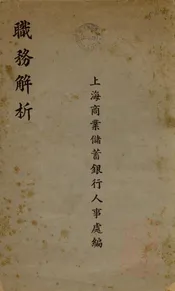 職務解析
上海商業儲蓄銀行人事處編